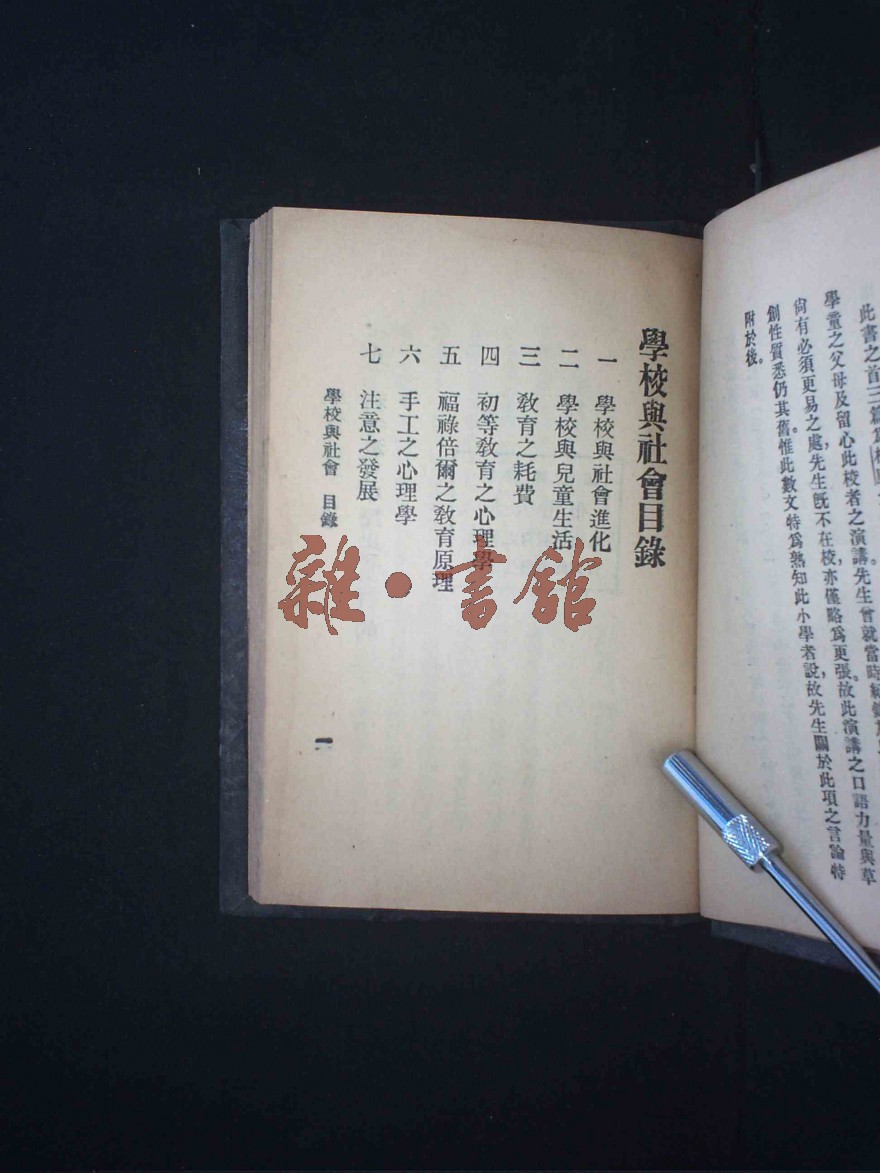 此書之首三篇爲
學童之父母及留心此校者之演講先生曾就當時
尙有必須更易之處,先生旣不在校,亦僅略爲更張。故此演講之口語力量與草
創性質悉仍其舊惟此數文特爲熟知此小學者說,故先生關於此項之言論特
附於後。
學校與社會目錄
一 學校與社會進化
二 學校與兒童生活
三 敎育之耗費
四 初等敎育之心理學
五 福祿倍爾之敎育原理
六 手工之心理學
七 注意之發展
學校與社會 目錄
一
雜·書館